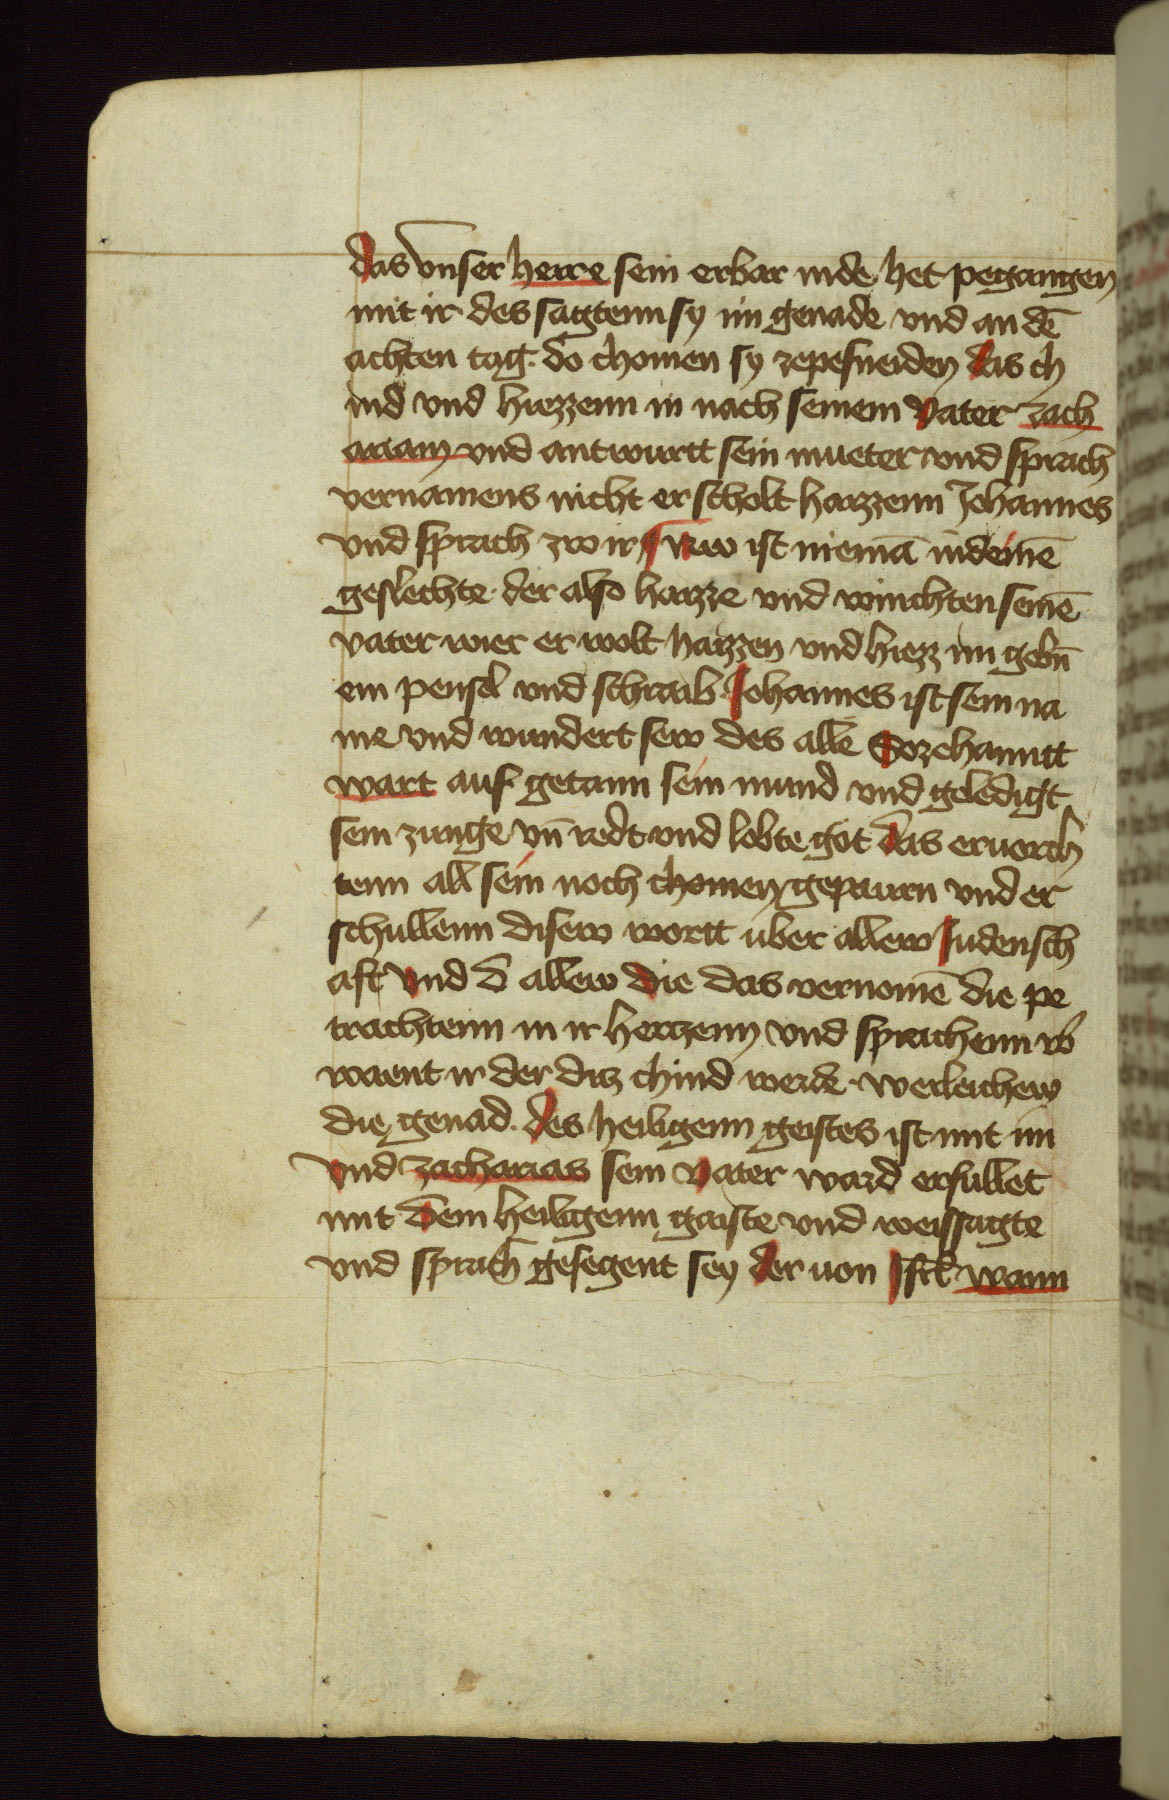 das vnser herre sein erbar mde het pegangen
mit ir des sagtenn sy im genade vnd an dē
achten tag. do chomen sy zepesneiden das ch
ind vnd hiezzenn in nach seinem vater zach
ariam vnd antwurtt sein mueter vnd sprach
vernamens nicht er scholt haizzenn Johannes
vnd sprach zw ir Nw ist niemā in deinē
geslechte der also haizze vnd winchten seinē
vater wier er wolt haizzen vnd hiezz im gebn̄
ein pensel vnd schraib Johannes ist sein na
me vnd wundert sew des alle Sozehanntt
wart auf getann sein mund vnd geledigt
sein zunge vn̄ redt vnd lobte got das eruorch
tenn all sein noch chomen gepawrn vnd er
schullenn disew wortt uber allew Judensch
aft vnd d allew die das vernomē die pe
trachtenn in ir hertzenn vnd sprachenn
waent ir der ditz chind werde. werleichew
die genad. des heiligenn geistes ist mit im
vnd zacharias sein vater ward erfullet
mit dem heiligenn gaiste vnd weissagte
vnd sprach gesegent sey der von Isrl wann